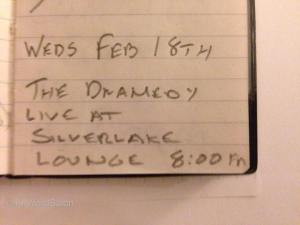 WEDS FEB 18TH
THE DRAMEDY
LIVE AT
SILVERLAKE
LOUNGE 8:00 PM